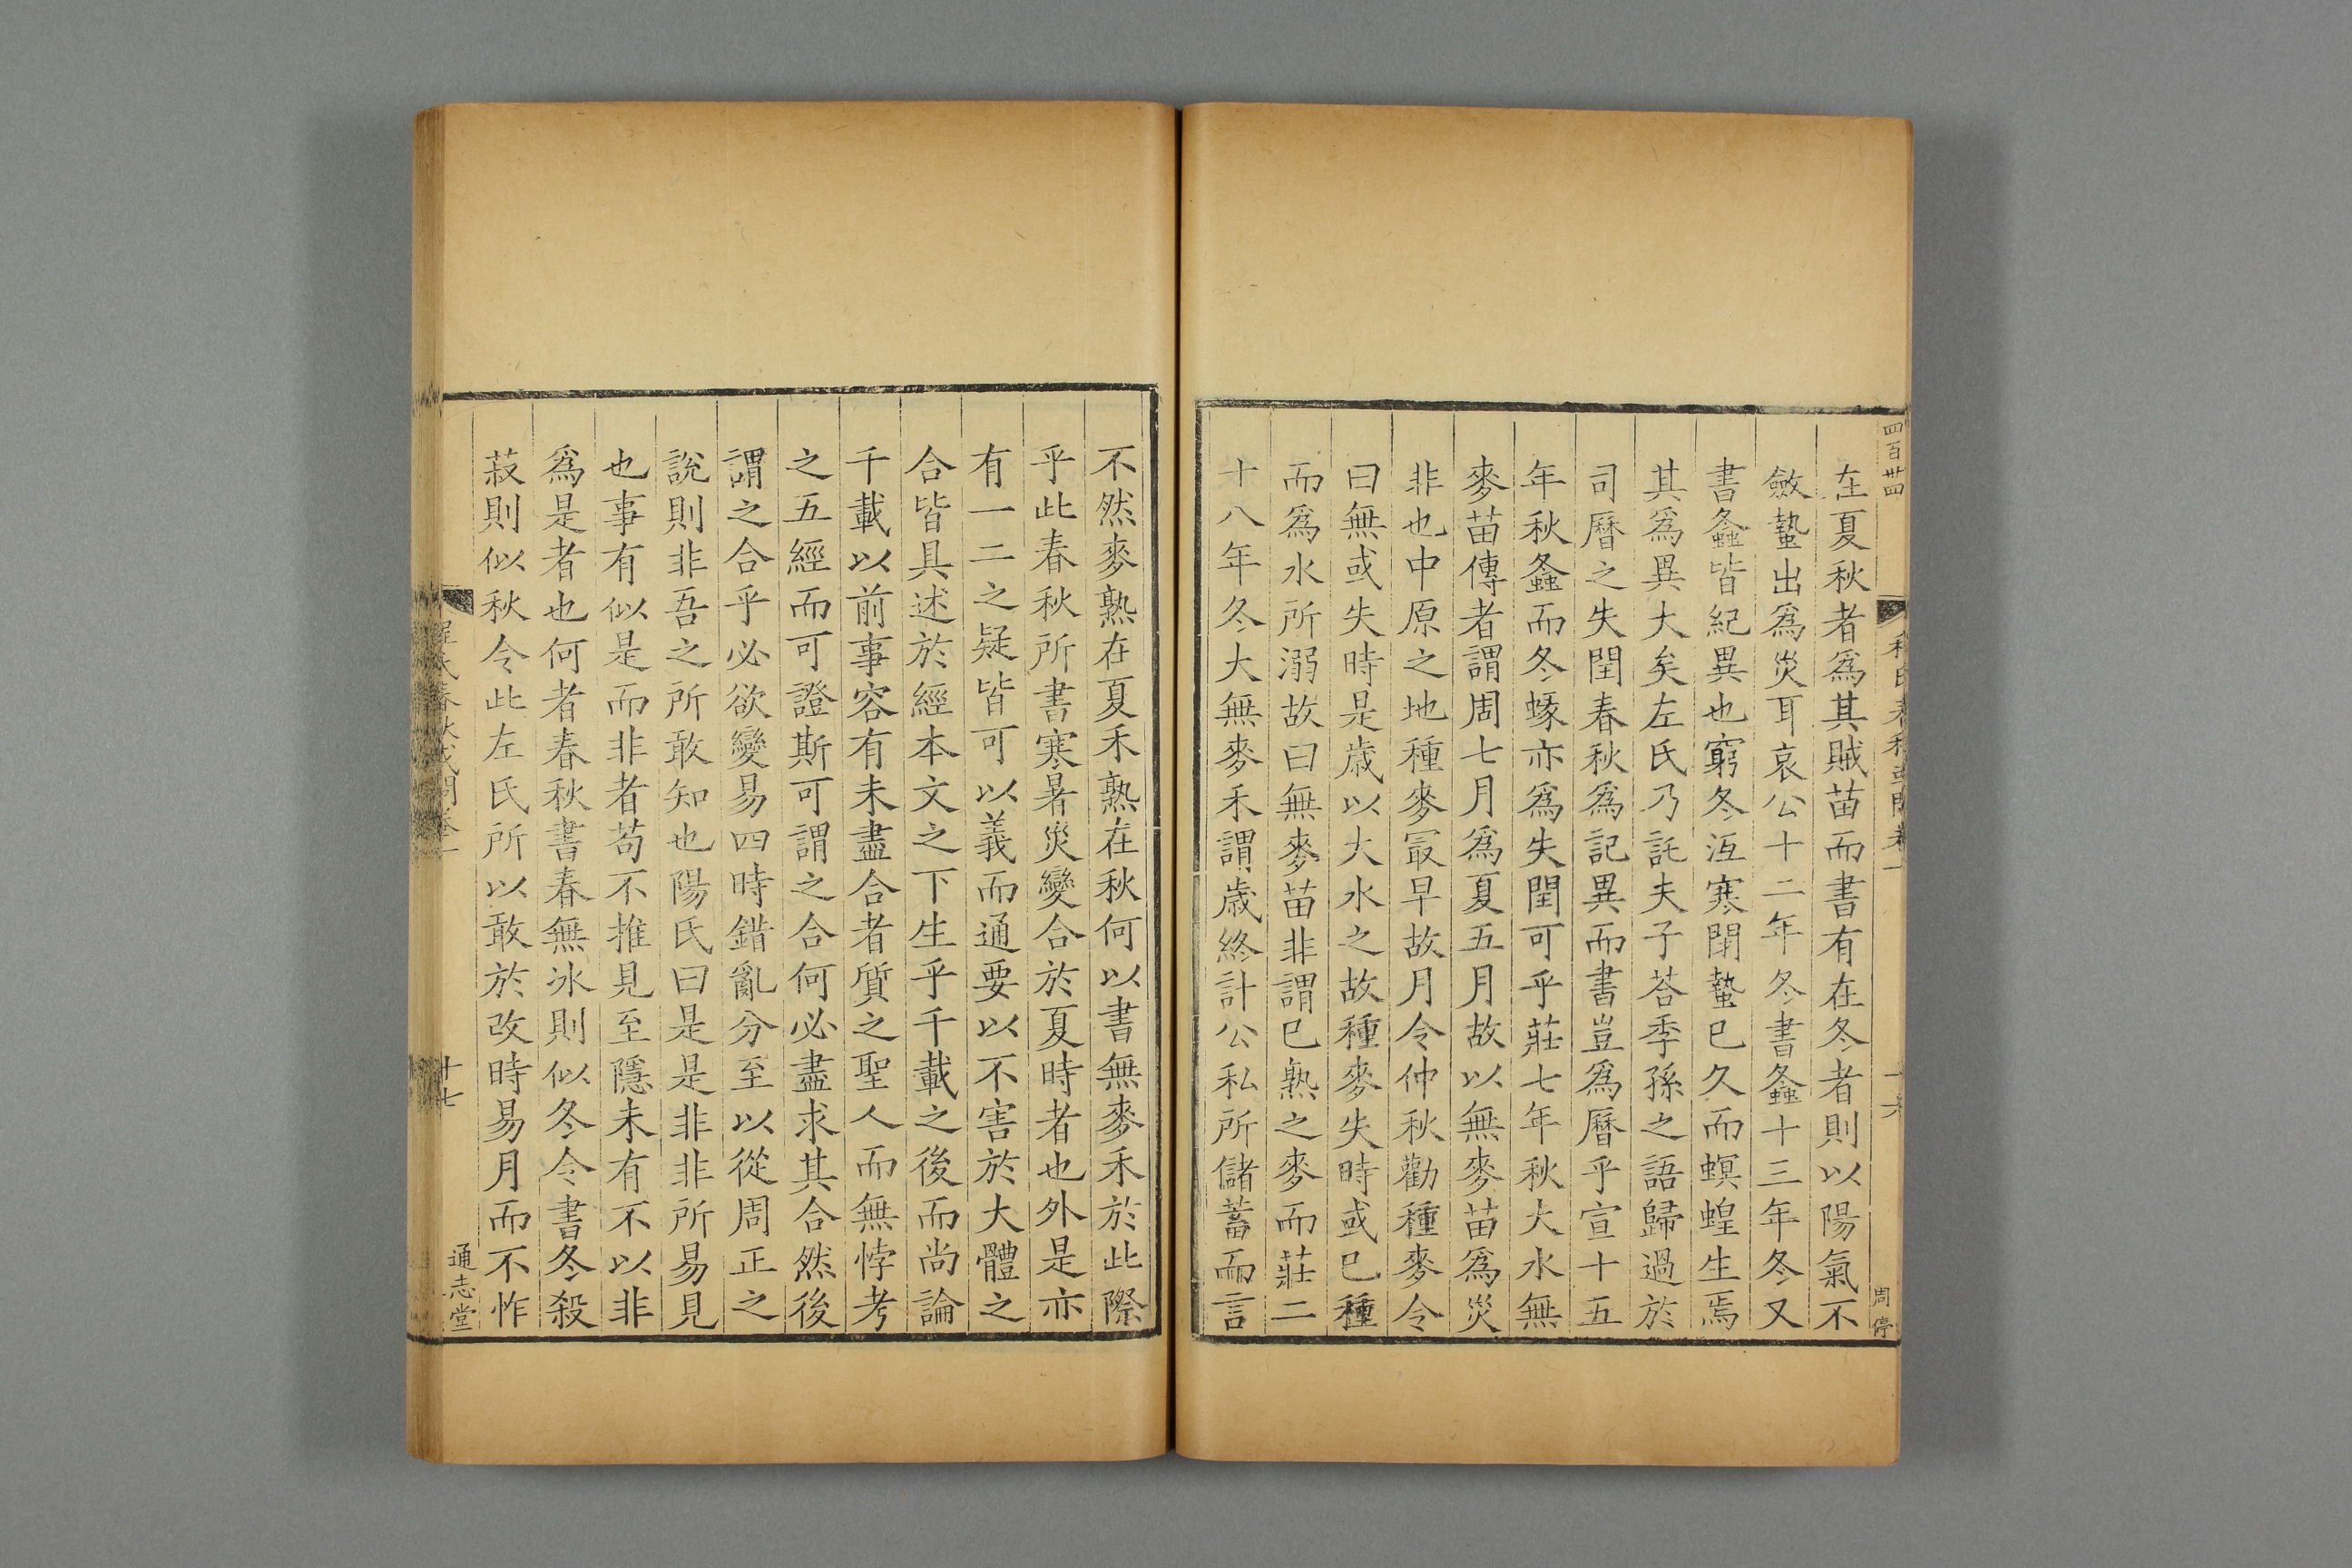 四百卅四
在夏秋者爲其賊苗而書有在冬者則以陽氣不
斂蟄出爲災耳哀公十二年冬書螽十三年冬又
書螽皆紀異也窮冬沍寒閉蟄已久而螟蝗生焉
其爲異大矣左氏乃託夫子荅季孫之語歸過於
司曆之失閏春秋爲記異而書豈爲曆乎宣十五
年秋螽而冬蝝亦爲失閏可乎莊七年秋大水無
麥苗傳者謂周七月爲夏五月故以無麥苗爲災
非也中原之地種麥㝡早故月令仲秋勸種麥令
曰無或失時是歲以大水之故種麥失時或已種
而爲水所溺故曰無麥苗非謂已熟之麥而莊二
十八年冬大無麥禾謂歲終計公私所儲蓄而言
周停
不然麥熟在夏禾熟在秋何以書無麥禾於此際
乎此春秋所書寒暑災變合於夏時者也外是亦
有一二之疑皆可以義而通要以不害於大體之
合皆具述於經本文之下生乎千載之後而尚論
千載以前事容有未盡合者質之聖人而無悖考
之五經而可證斯可謂之合何必盡求其合然後
謂之合乎必欲變易四時錯亂分至以從周正之
說則非吾之所敢知也陽氏曰是是非非所易見
也事有似是而非者苟不推見至隱未有不以非
爲是者也何者春秋書春無冰則似冬令書冬殺
菽則似秋令此左氏所以敢於改時易月而不怍
春秋或問卷一
十七
通志堂